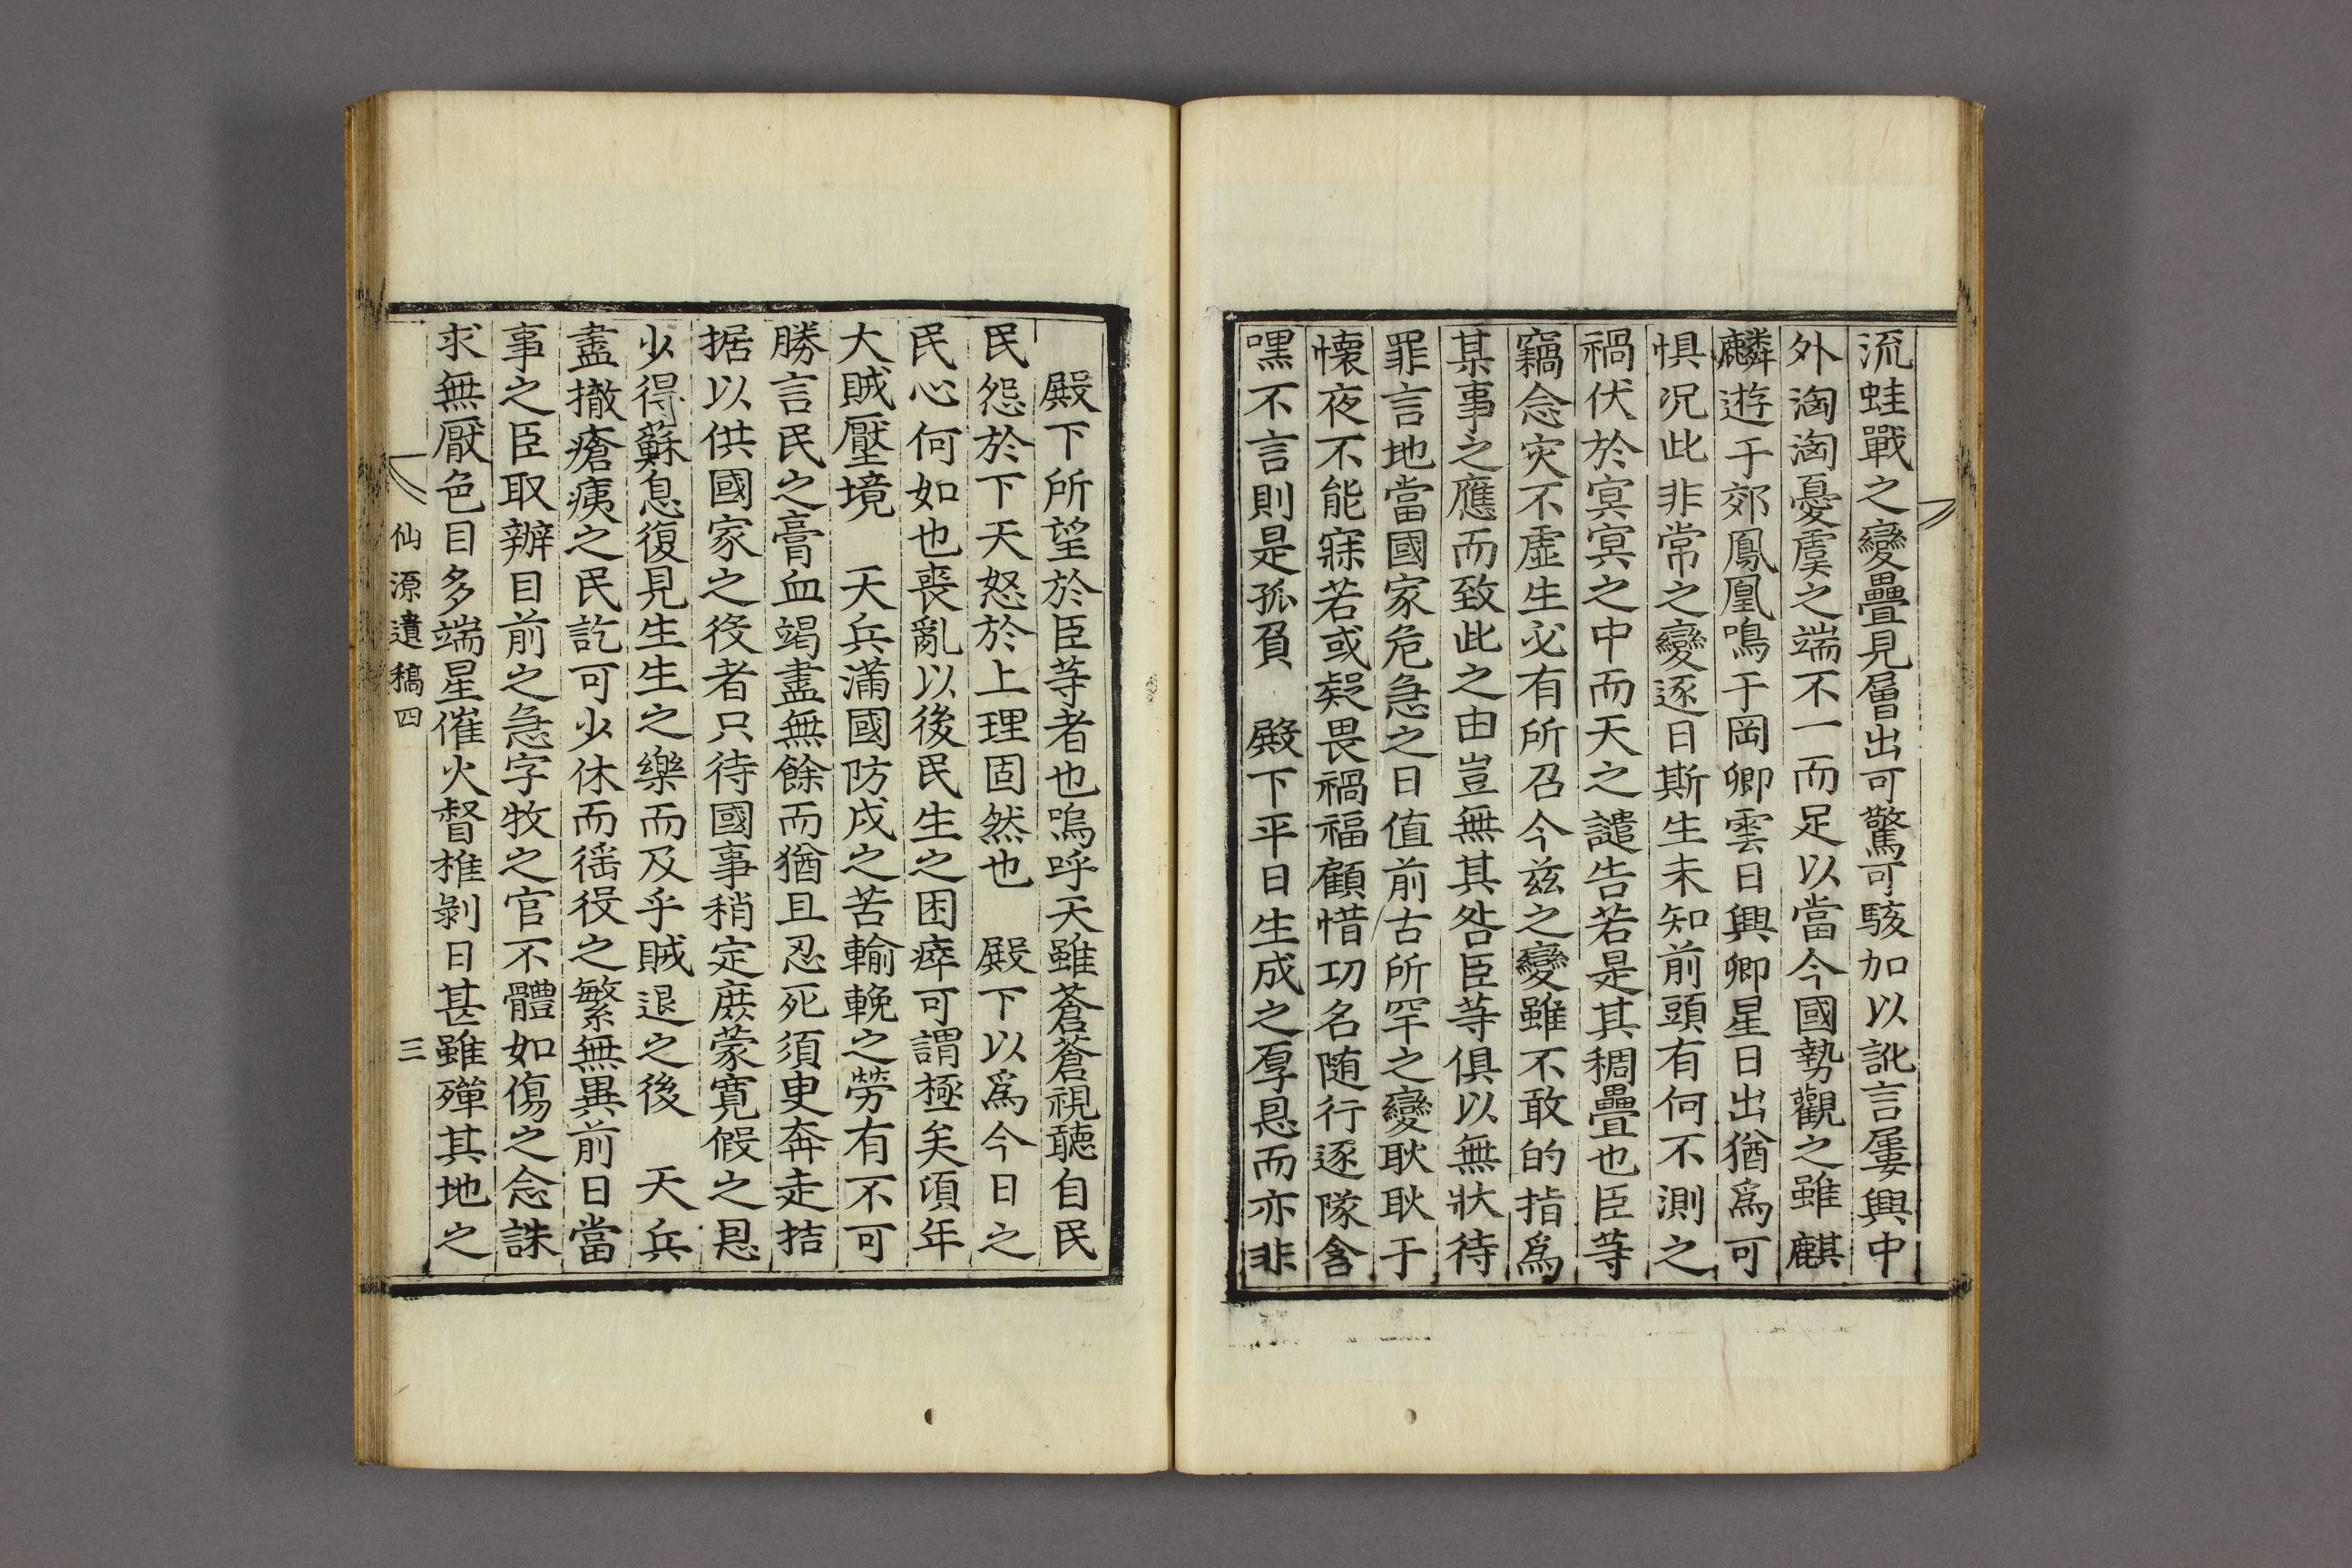 流蛙戰之變疊見層出可驚可駭加以訛言屢興中
外洶洶憂虞之端不一而足以當今國勢觀之雖麒
麟遊于郊鳳凰鳴于岡卿雲日興卿星日出猶爲可
惧况此非常之變逐日斯生未知前頭有何不測之
禍伏於㝠㝠之中而天之譴告若是其稠疊也臣等
竊念灾不虛生必有所召今兹之變雖不敢的指爲
某事之應而致此之由豈無其咎臣等俱以無狀待
罪言地當國家危急之日值前古所罕之變耿耿于
懷夜不能寐若或疑畏禍福顧惜功名随行逐隊含
嘿不言則是孤負　殿下平日生成之厚恩而亦非
殿下所望於臣等者也嗚呼天雖蒼蒼視聽自民
民怨於下天怒於上理固然也　殿下以爲今日之
民心何如也喪亂以後民生之困瘁可謂極矣頃年
大賊壓境　天兵滿國防戍之苦輸輓之勞有不可
勝言民之膏血竭盡無餘而猶且忍死須臾奔走拮
据以供國家之役者只待國事稍定庶蒙寬假之恩
少得蘇息復見生生之樂而及乎賊退之後　天兵
盡撤瘡痍之民訖可少休而徭役之繁無異前日當
事之臣取辦目前之急字牧之官不體如傷之念誅
求無厭色目多端星催火督椎剝日甚雖殫其地之
仙源遺稿四　三